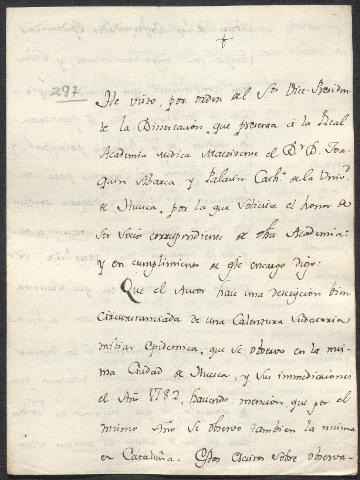 †
297
He visto, por orden del Sor Vice-Presiden
te la Disertacion, que presenta á la Real
Academia medica Matritense el Dr. D. Joa-
quin Abarca y Palacin Cathco. de la Univd.
de Huesca, por la que solicita el honor de
ser Socio correspondiente de dha Academia:
y en cumplimiento de este encargo digo:
Que el Autor hace una descripcion bien
circunstanciada de una Calentura Sudatoria
miliar Epidemica, que se observó en la mis
ma Ciudad de Huesca, y sus immediaciones
el Año 1782, haciendo mencion que por el
mismo Año se observo tambien la misma
en Cataluña. Estos Escritos sobre observa-